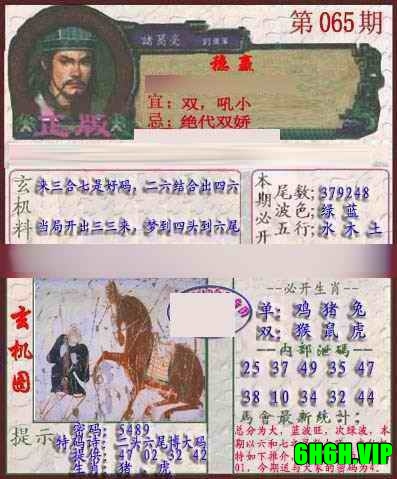 第065期
諸葛亮
稳赢
宜：双，吼小
忌：绝代双娇
正版
玄机料
来三合七是好码，二六结合出四六
当局开出三三来，梦到四头到六尾
本期必开
尾数：379248
波色：绿 蓝
五行：水 木 土
玄机图
必开生肖
单：鸡 猪 兔
双：猴 鼠 虎
内部泄码
25 37 49 35 47
38 10 34 32 44
馬會最新統計：
总分为大，蓝波旺，次绿波，本
期以六和七
01，今期送与大家的密码为4。
提示
密码：5489
特码诗：二头六尾博大码
提倍：47 02 32 42
生肖：猪．虎
6HGH.VIP